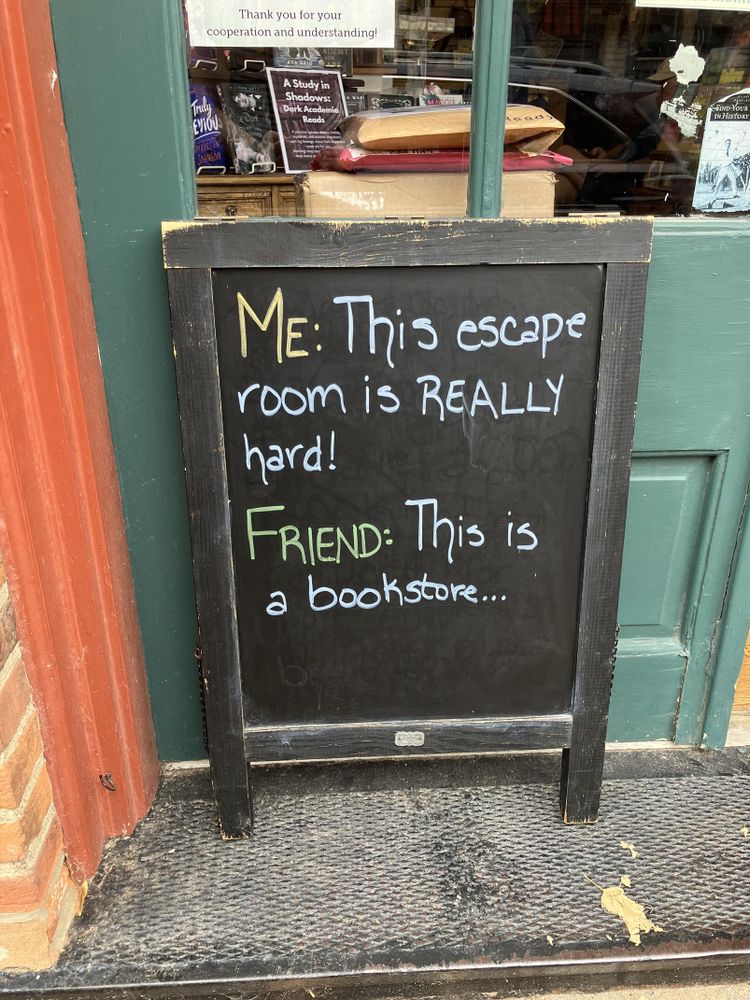 Thank you for your
cooperation and understanding!
A Study in
Shadows:
Dark Academia
Reads
Truly
FIND YOUR
IN HISTORY
ME: This escape
room is REALLY
hard!
FRIEND: This is
a bookstore...